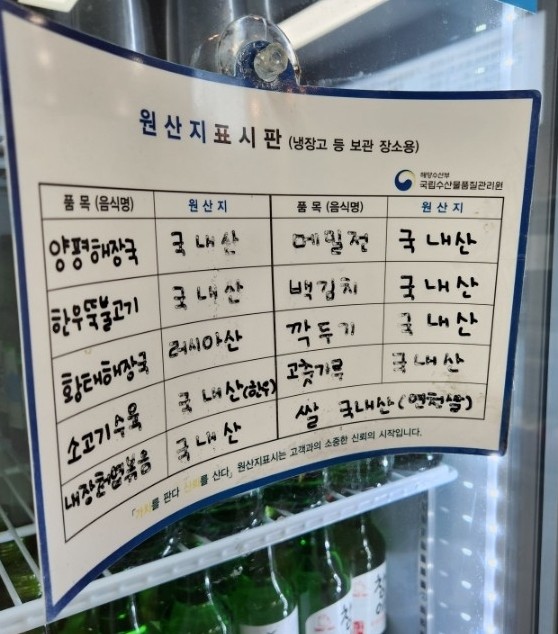 원산지표시판 (냉장고 등 보관 장소용)
해양수산부
국립수산물품질관리원
품 목 (음식명) 원 산 지 품 목 (음식명) 원 산 지
양평해장국 국내산 메밀전 국내산
한우뚝불고기 국내산 백김치 국내산
황태해장국 러시아산 깍두기 국내산
소고기수육 국내산(한우) 고춧가루 국내산
내장철판볶음 국내산 쌀 국내산(연천쌀)
를 판다 를 산다」 원산지표시는 고객과의 소중한 신뢰의 시작입니다.